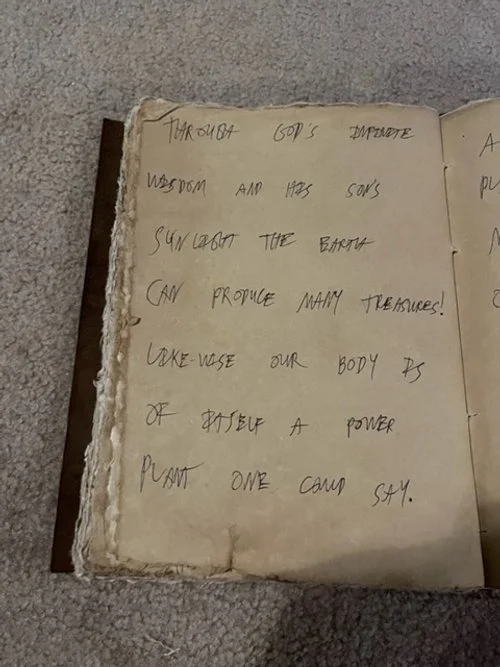 THROUGH GOD'S INFINITE
WISDOM AND HIS SON'S
SUNLIGHT THE EARTH
CAN PRODUCE MANY TREASURES!
LIKE-WISE OUR BODY IS
OF ITSELF A POWER
PLANT ONE COULD SAY.
A
PL